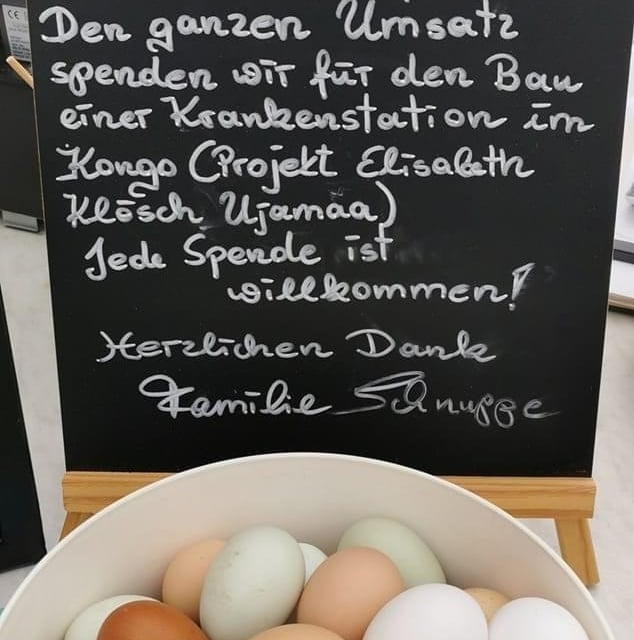 Den ganzen Umsatz
spenden wir für den Bau
einer Krankenstation im
Kongo (Projekt Elisabeth
Klösch Ujamaa)
Jede Spende ist
willkommen!
Herzlichen Dank
Familie Schnuppe
CE